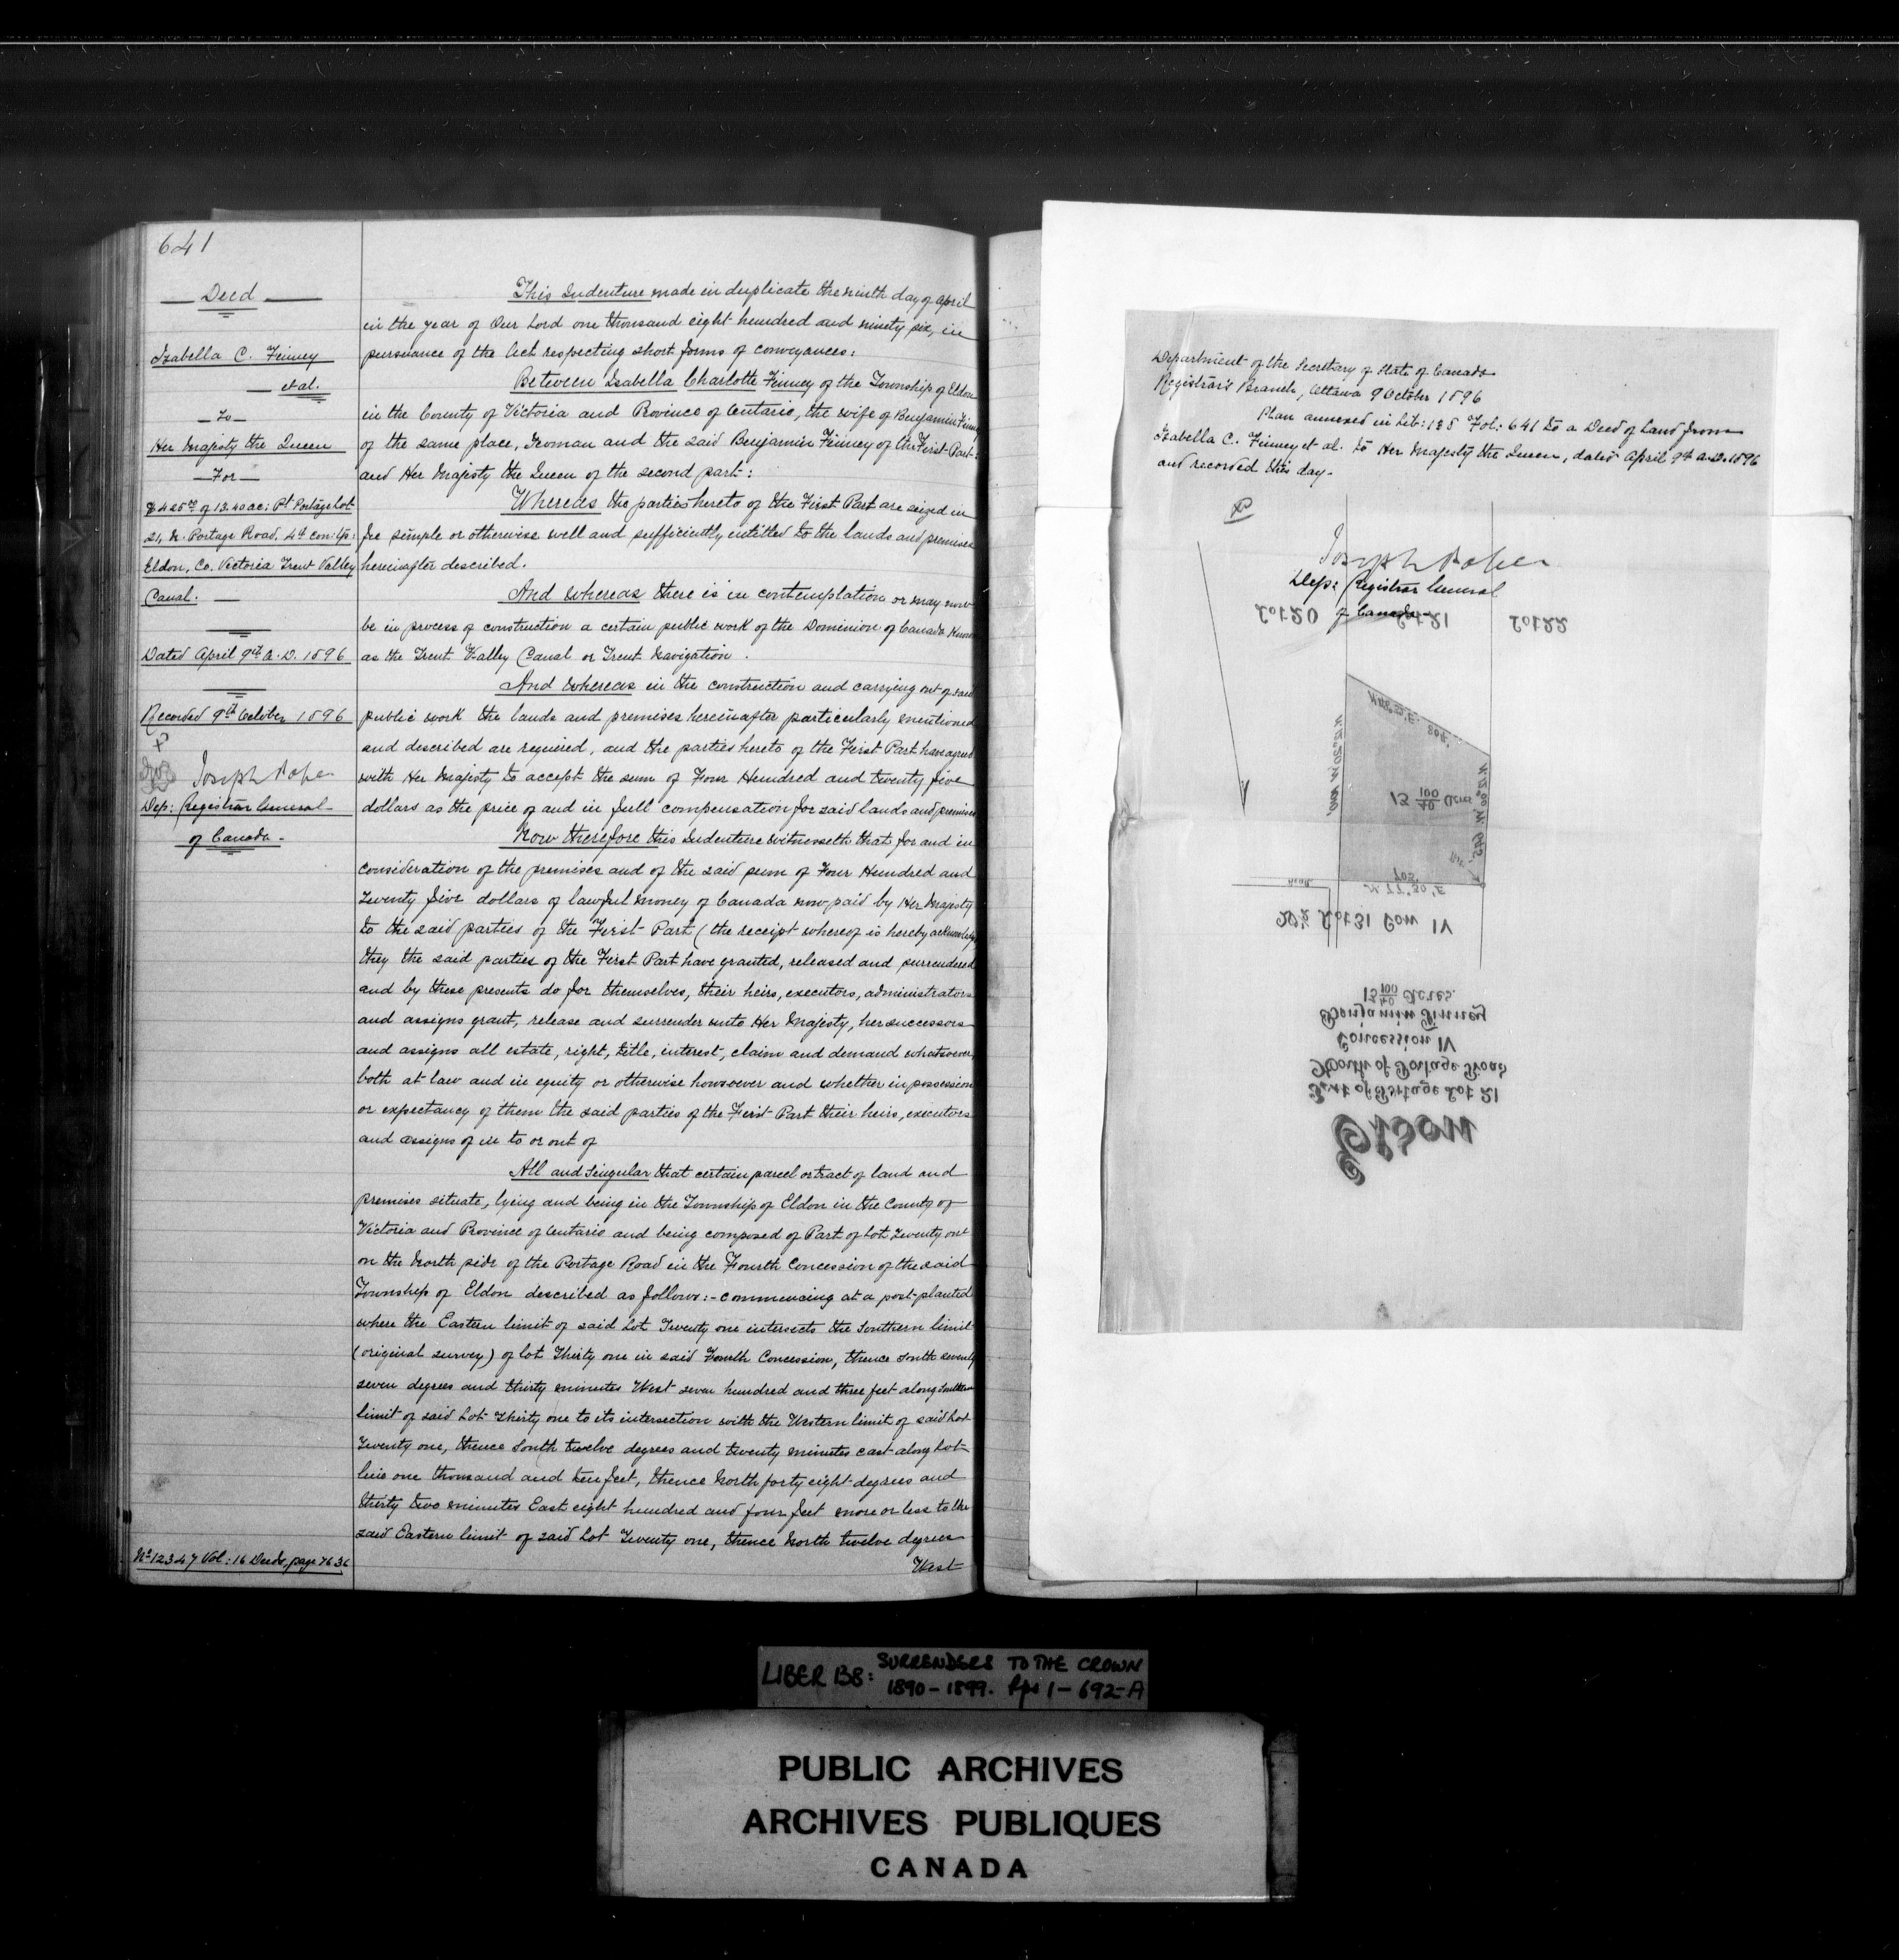 641
Deed
Isabella C. Finney
et al.
to
Her Majesty the Queen
For
$425.00 of 13.40 ac: Pt Portage Lot
21, N. Portage Road, 4th con: Tp:
Eldon, Co. Victoria Trent Valley
Canal.
Dated April 9th A.D. 1896
Recorded 9th October 1896
Joseph Pope
Dep: Registrar General
of Canada.
No 12347 Vol: 16 Deeds, page 7636
This Indenture made in duplicate the ninth day of April
in the year of Our Lord one thousand eight hundred and ninety six, in
pursuance of the Act respecting short forms of conveyances:
Between Isabella Charlotte Finney of the Township of Eldon
in the County of Victoria and Province of Ontario, the wife of Benjamin Finney
of the same place, Yeoman and the said Benjamin Finney of the First Part:
and Her Majesty the Queen of the second part:
Whereas the parties hereto of the First Part are seized in
fee simple or otherwise well and sufficiently entitled to the lands and premises
hereinafter described.
And whereas there is in contemplation or may now
be in process of construction a certain public work of the Dominion of Canada known
as the Trent Valley Canal or Trent Navigation.
And whereas in the construction and carrying out of said
public work the lands and premises hereinafter particularly mentioned
and described are required, and the parties hereto of the First Part have agreed
with Her Majesty to accept the sum of Four Hundred and twenty five
dollars as the price of and in full compensation for said lands and premises
Now therefore this Indenture witnesseth that for and in
consideration of the premises and of the said sum of Four Hundred and
Twenty five dollars of lawful money of Canada now paid by Her Majesty
to the said parties of the First Part (the receipt whereof is hereby acknowledged
they the said parties of the First Part have granted, released and surrendered
and by these presents do for themselves, their heirs, executors, administrators
and assigns grant, release and surrender unto Her Majesty, her successors
and assigns all estate, right, title, interest, claim and demand whatsoever
both at law and in equity or otherwise howsoever and whether in possession
or expectancy of them the said parties of the First Part their heirs, executors
and assigns of in to or out of
All and Singular that certain parcel or tract of land and
premises situate, lying and being in the Township of Eldon in the County of
Victoria and Province of Ontario and being composed of Part of Lot Twenty one
on the North side of the Portage Road in the Fourth Concession of the said
Township of Eldon described as follows:- commencing at a post planted
where the Eastern limit of said Lot Twenty one intersects the Southern limit
(original survey) of lot Thirty one in said Fourth Concession, thence South seventy
seven degrees and thirty minutes West seven hundred and three feet along Southern
limit of said Lot Thirty one to its intersection with the Western limit of said Lot
Twenty one, thence South twelve degrees and twenty minutes east along Lot
line one thousand and ten feet, thence North forty eight degrees and
thirty two minutes East eight hundred and four feet more or less to the
said Eastern limit of said Lot Twenty one, thence North twelve degrees
West
Department of the Secretary of State of Canada
Registrar's Branch, Ottawa 9 October 1896
Plan annexed in Lib: 138 Fol: 641 to a Deed of Land from
Isabella C. Finney et al. to Her Majesty the Queen, dated April 9th A.D. 1896
and recorded this day.
Joseph Pope
Dep: Registrar General
of Canada
Lot 20
Lot 21
Lot 22
804
13 40/100 Acres
703
N.77°30'E
Road
W½ Lot 31 Con IV
13 40/100 Acres.
Benjamin Finney
Concession IV
North of Portage Road
Part of Portage Lot 21
Eldon
LIBER 138: SURRENDERS TO THE CROWN
1890-1899. Pps 1-692-A
PUBLIC ARCHIVES
ARCHIVES PUBLIQUES
CANADA